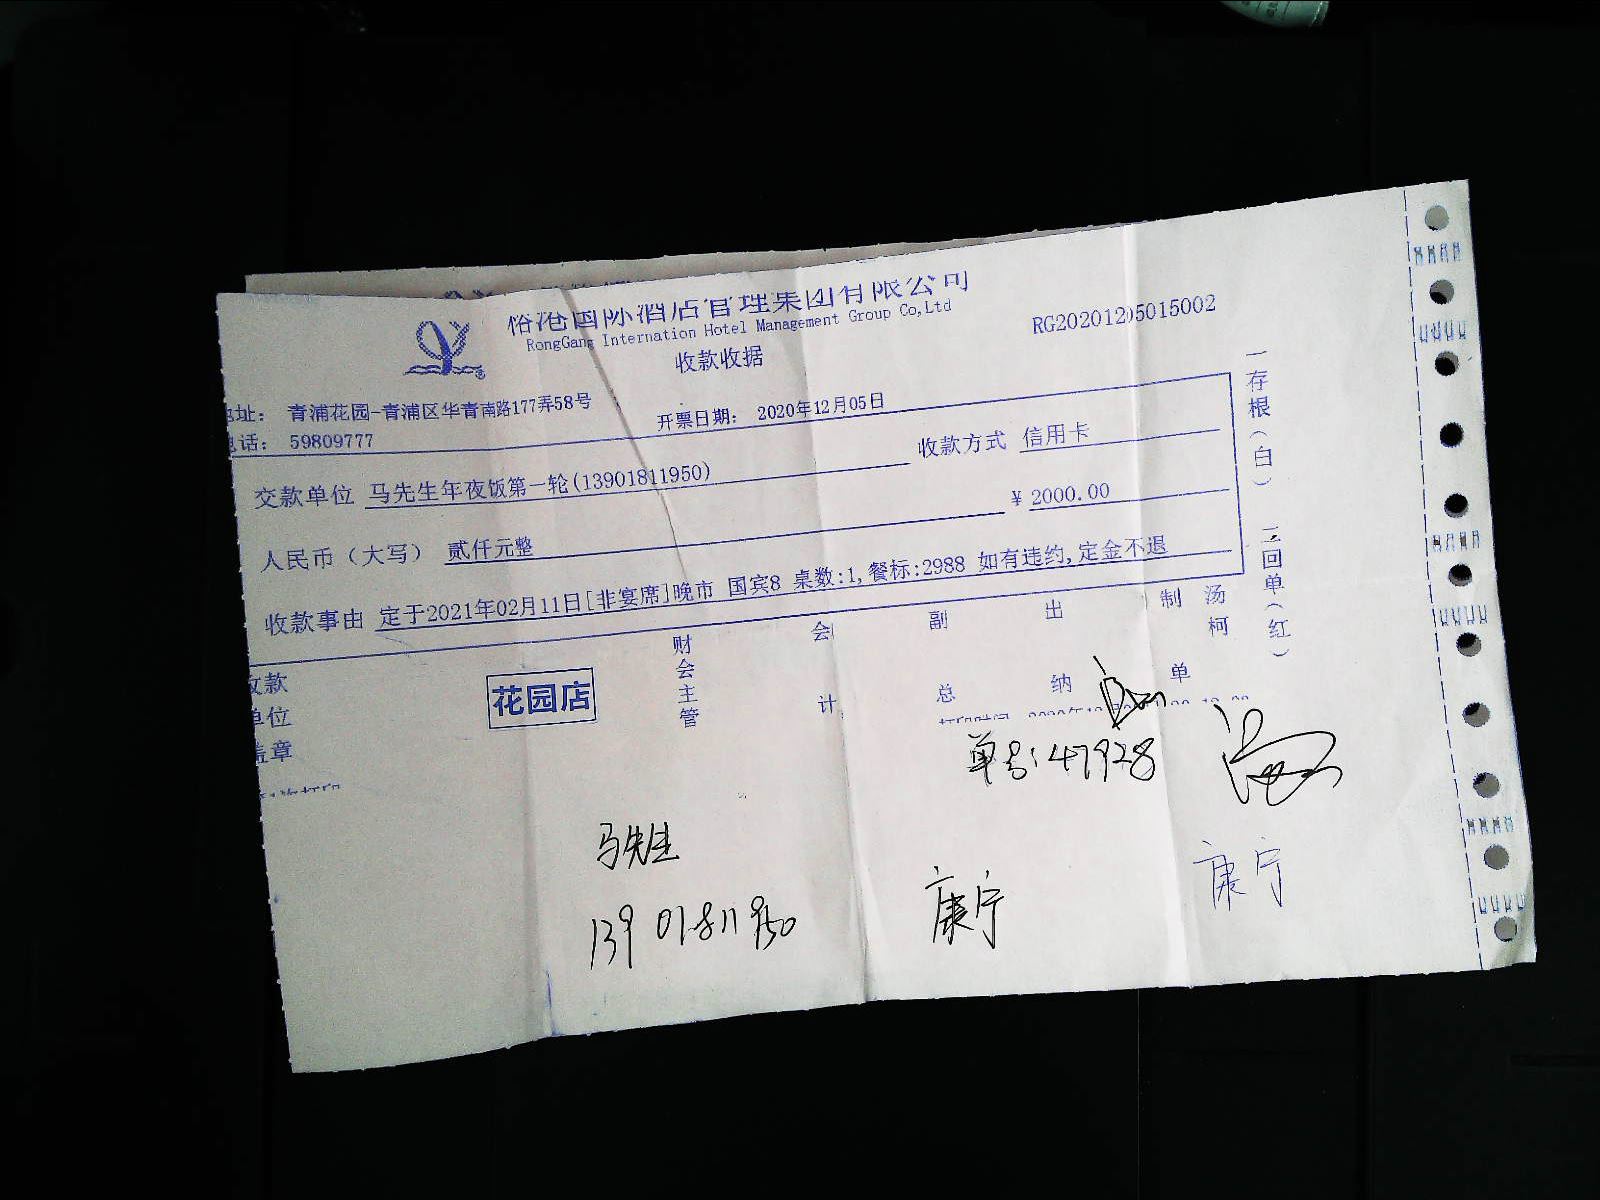 俗港国际酒店管理集团有限公司
RongGang Internation Hotel Management Group Co,Ltd
收款收据
RG20201205015002
地址： 青浦花园-青浦区华青南路177弄58号
电话： 59809777
开票日期： 2020年12月05日
交款单位 马先生年夜饭第一轮(13901811950)
收款方式 信用卡
人民币（大写） 贰仟元整
¥ 2000.00
收款事由 定于2021年02月11日[非宴席]晚市 国宾8 桌数:1,餐标:2988 如有违约,定金不退
一存根（白） 二回单（红）
收款单位盖章
花园店
财会主管
会计
副总
出纳
制单
汤柯
单号:47928
马先生
13901811950
康宁
康宁